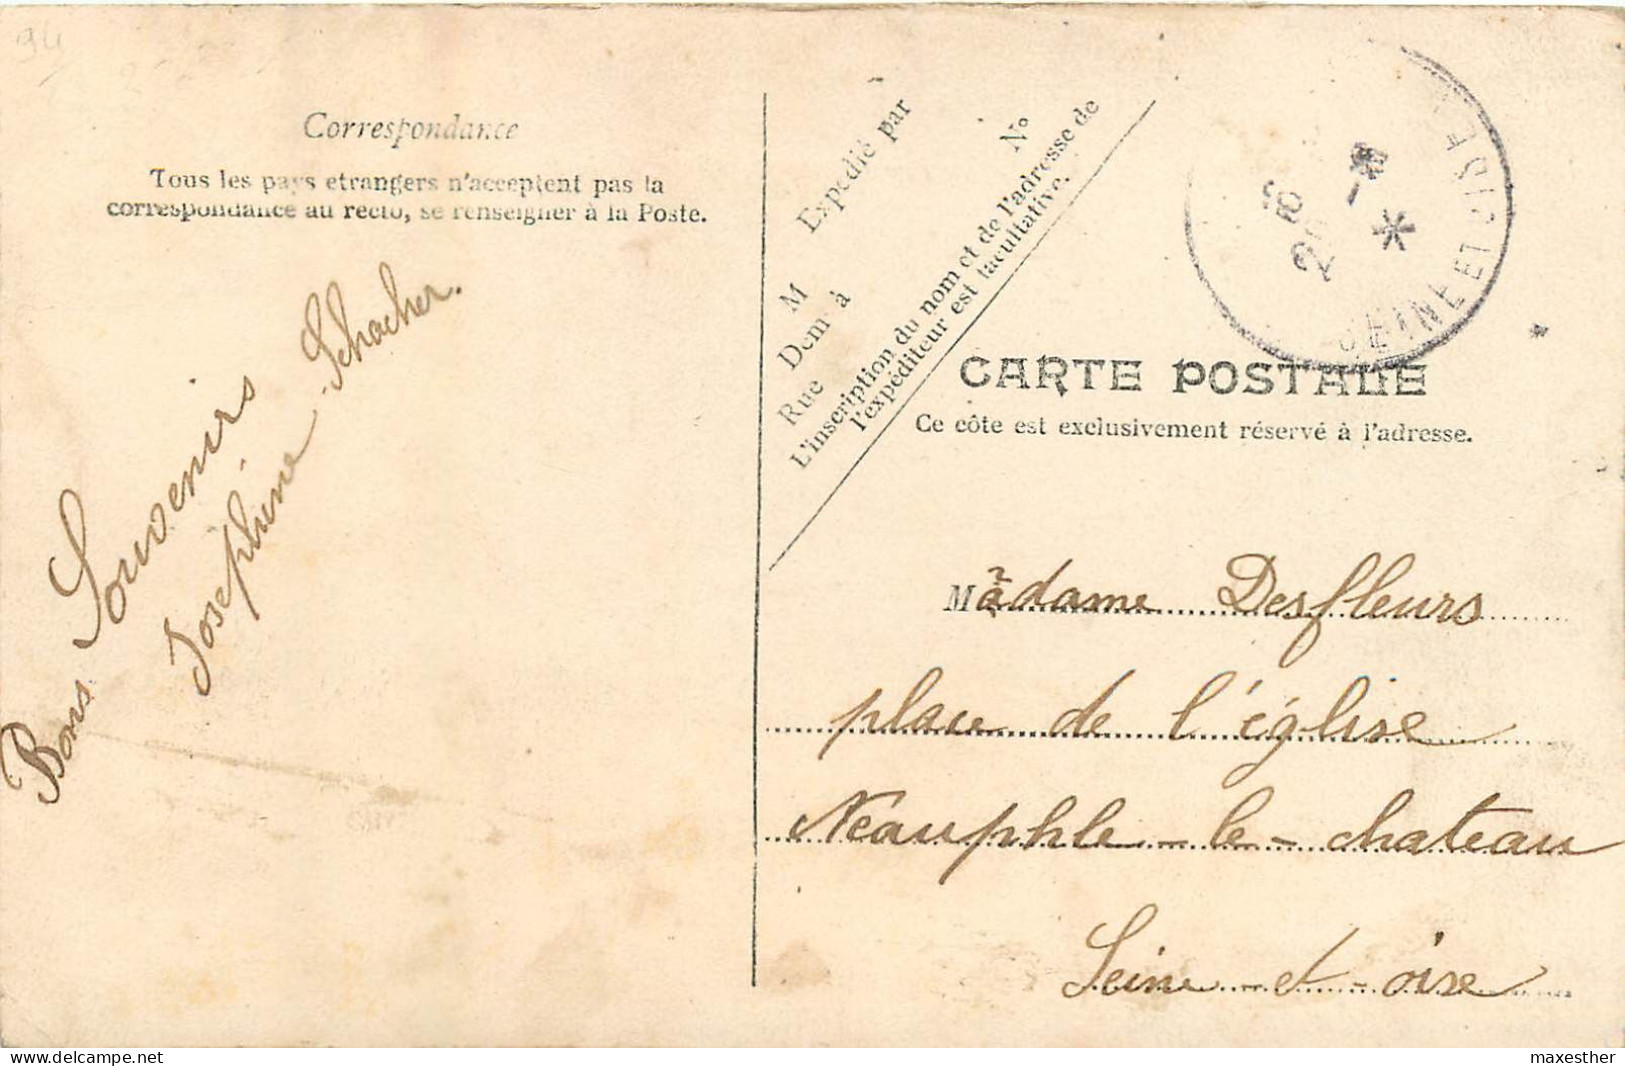 94
Correspondance
Tous les pays etrangers n'acceptent pas la
correspondance au recto, se renseigner à la Poste.
Bons Souvenirs
Joséphine Schocher.
Expédié par
M
Dem à
Rue
N°
L'inscription du nom et de l'adresse de
l'expéditeur est facultative.
SEINE ET OISE
CARTE POSTALE
Ce côte est exclusivement réservé à l'adresse.
Madame Desfleurs
place de l'église
Néauphle-le-chateau
Seine-et-oise
delcampe.net
maxesther